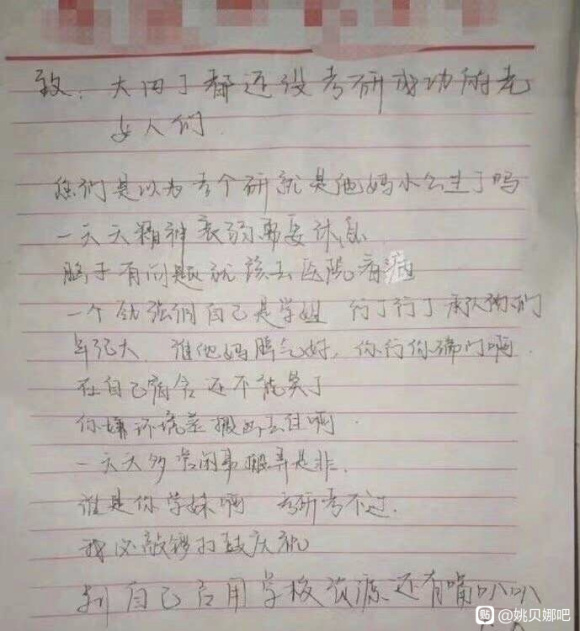 致：大四了都还没考研成功的老
女人们
您们是以为考个研就是他妈小公主了吗
一天天精神衰弱需要休息
脑子有问题就该去医院看病
一个劲强调自己是学姐 行了行了承认你们
年纪大. 谁他妈脾气好, 你行你摔门啊.
在自己宿舍还不能笑了
你嫌环境差搬出去住啊.
一天天多管闲事搬弄是非.
谁是你学妹啊 考研考不过.
我必敲锣打鼓庆祝
自己占用学校资源还有嘴叭叭
贴吧 @姚贝娜吧